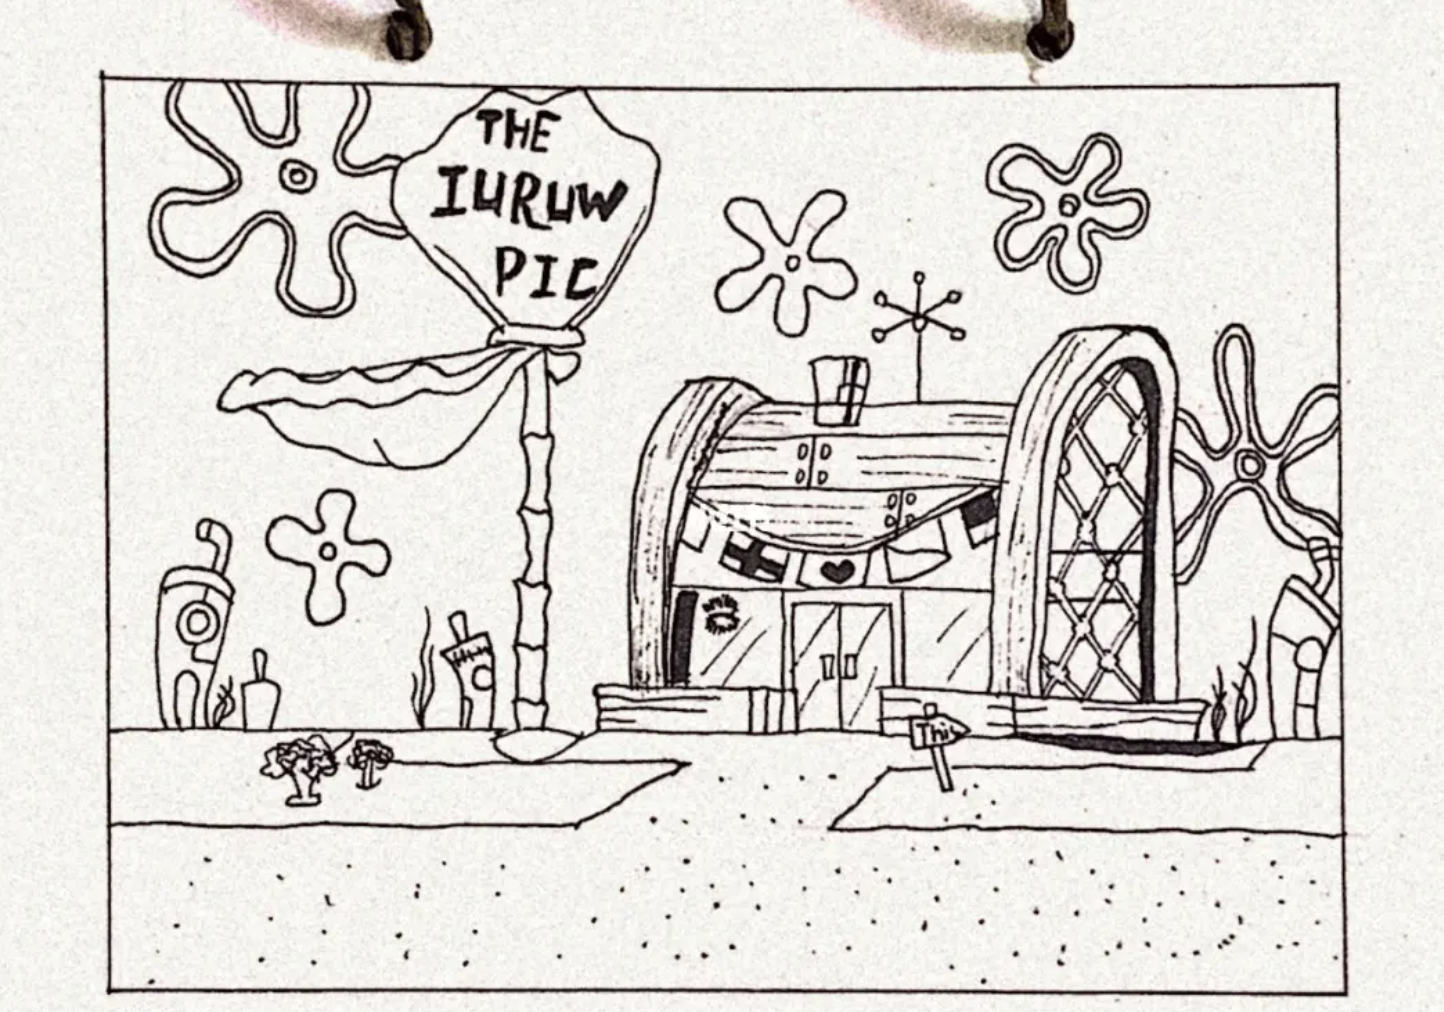 THE
IURUW
PIC
This